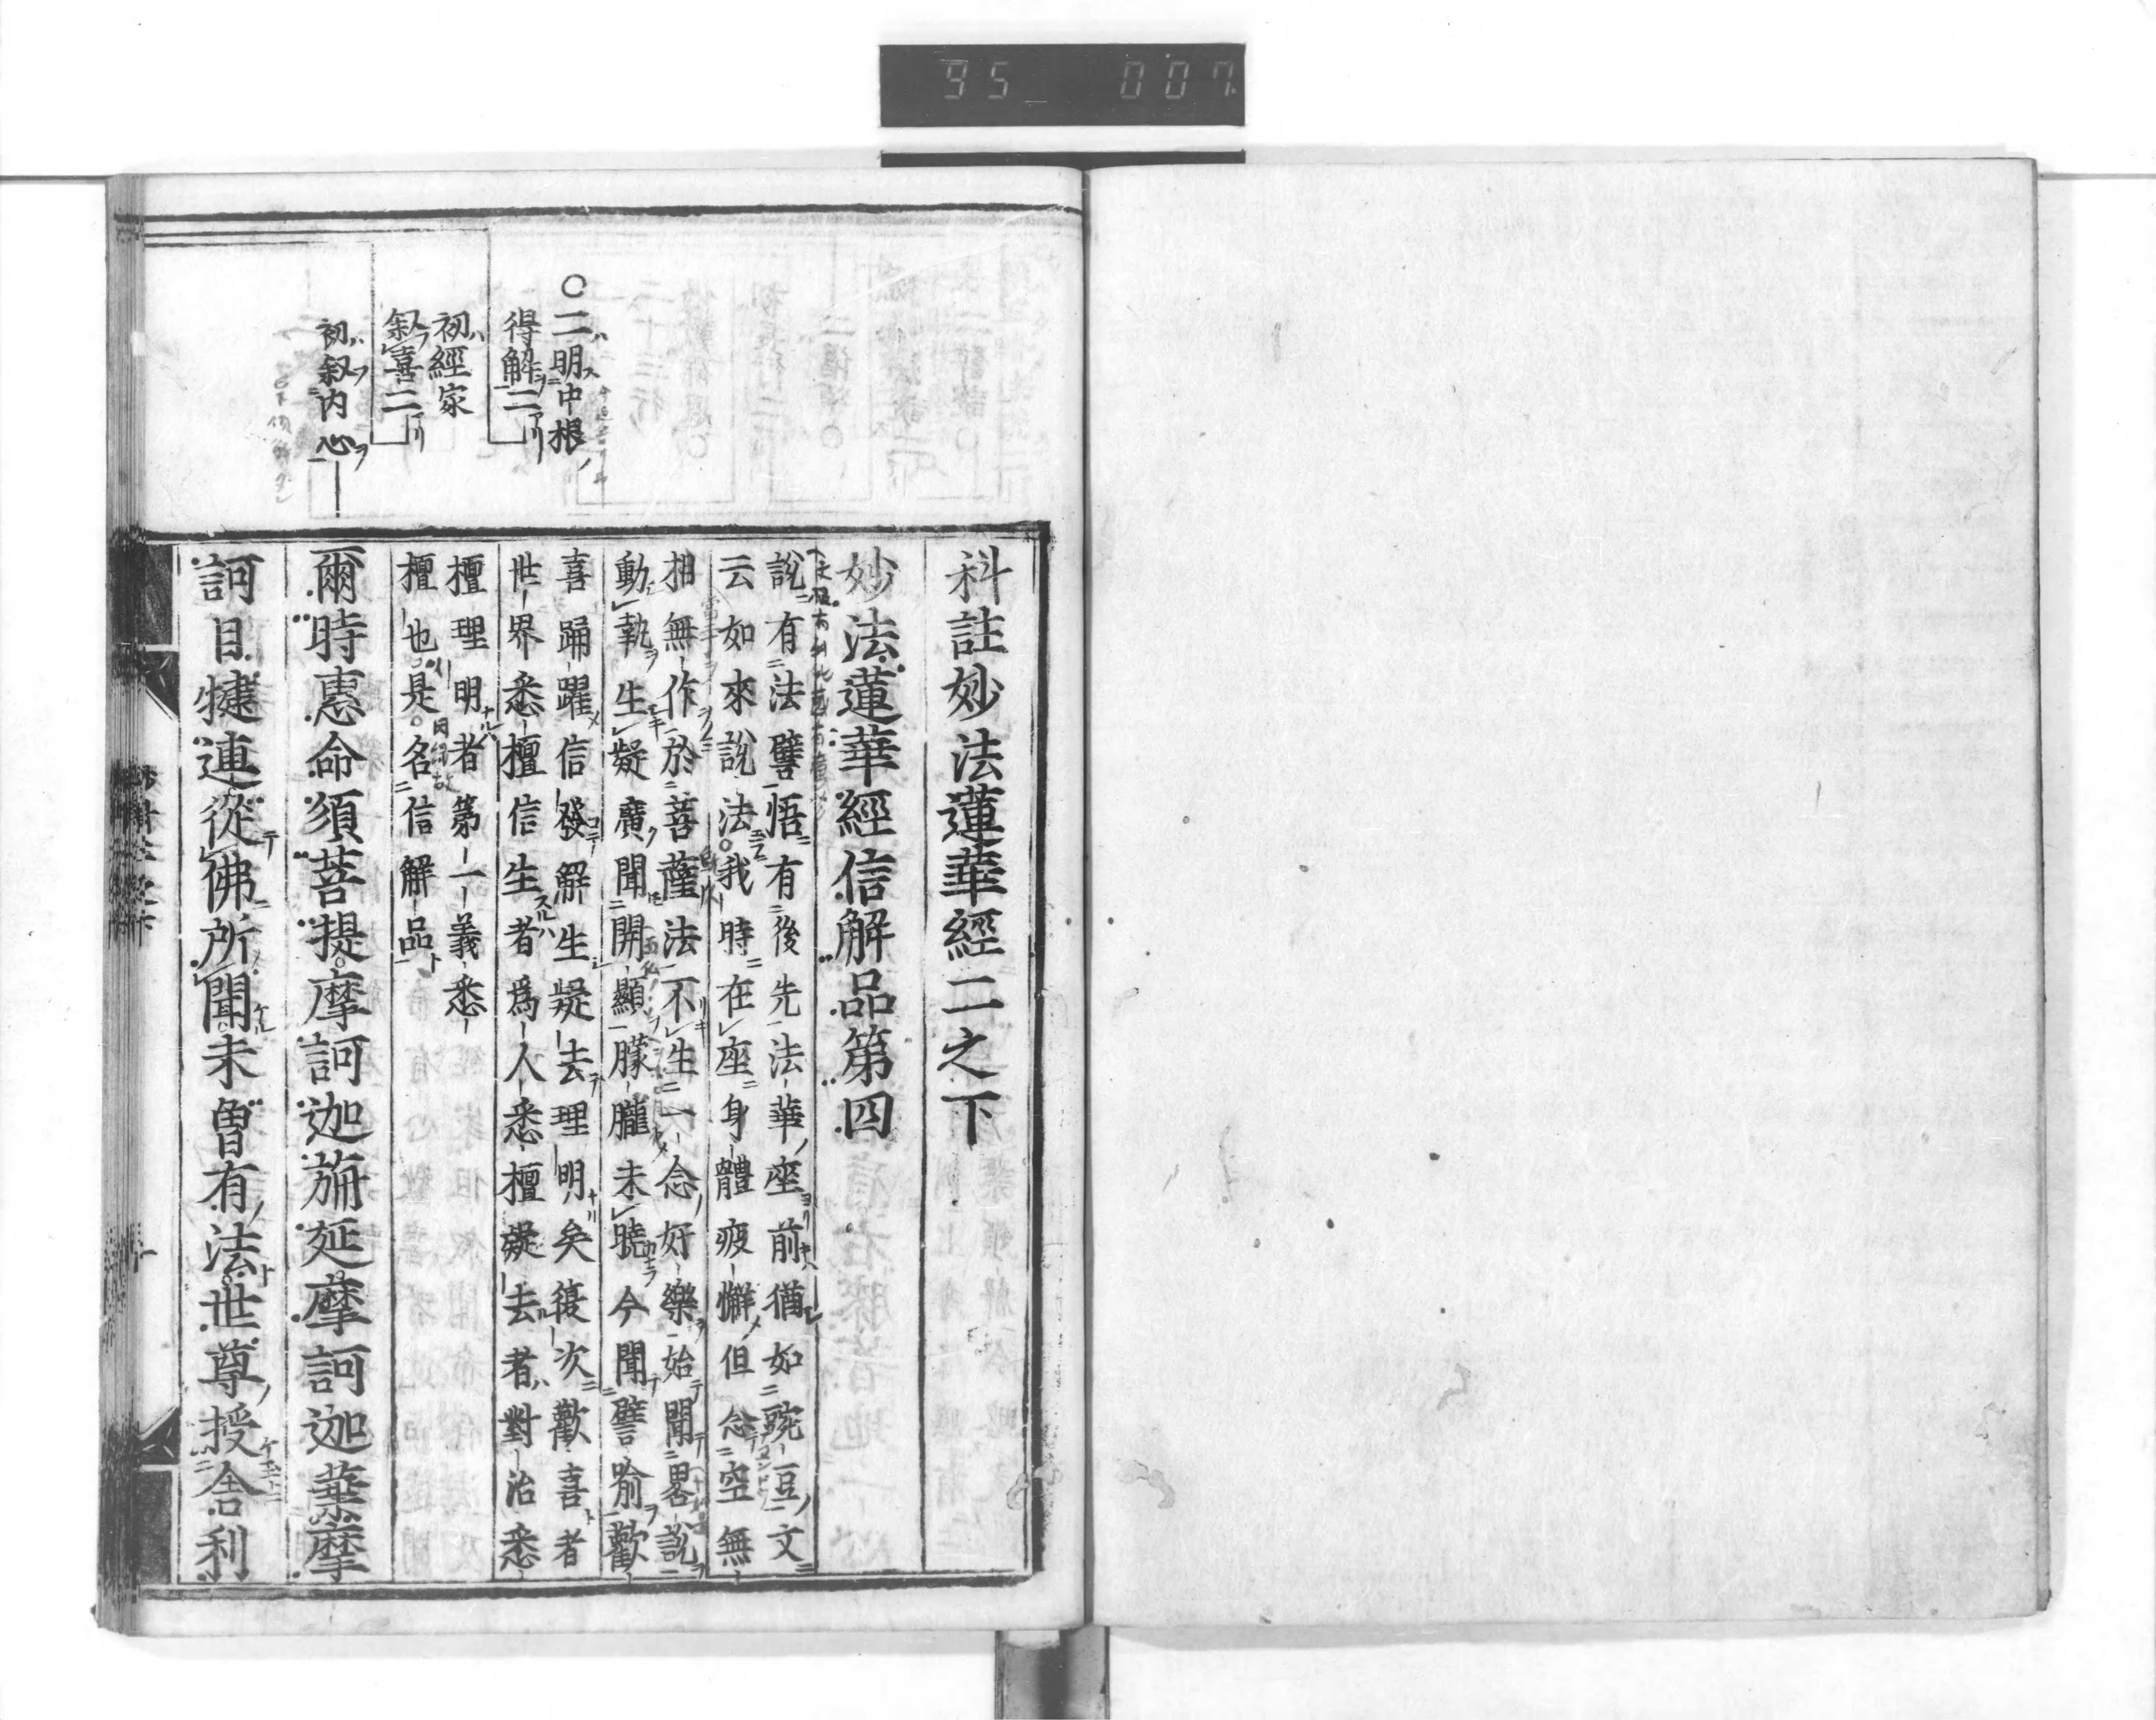 95 007
科註妙法蓮華經二之下
妙法蓮華經信解品第四
說有法譬悟有後先法華座前猶如豌豆文
云如來說法我時在座身體疲懈但念空無
相無作於菩薩法不生一念好樂始聞畧說
動執生疑廣聞開顯朦朧未曉今聞譬喻歡
喜踊躍信發解生疑去理明矣復次歡喜者
世界悉檀信生者爲人悉檀疑去者對治悉
檀理明者第一義悉
檀也是名信解品
爾時慧命須菩提摩訶迦旃延摩訶迦葉摩
訶目犍連從佛所聞未曾有法世尊授舍利
〇二明中根
得解二
初經家
叙喜二
初叙内心